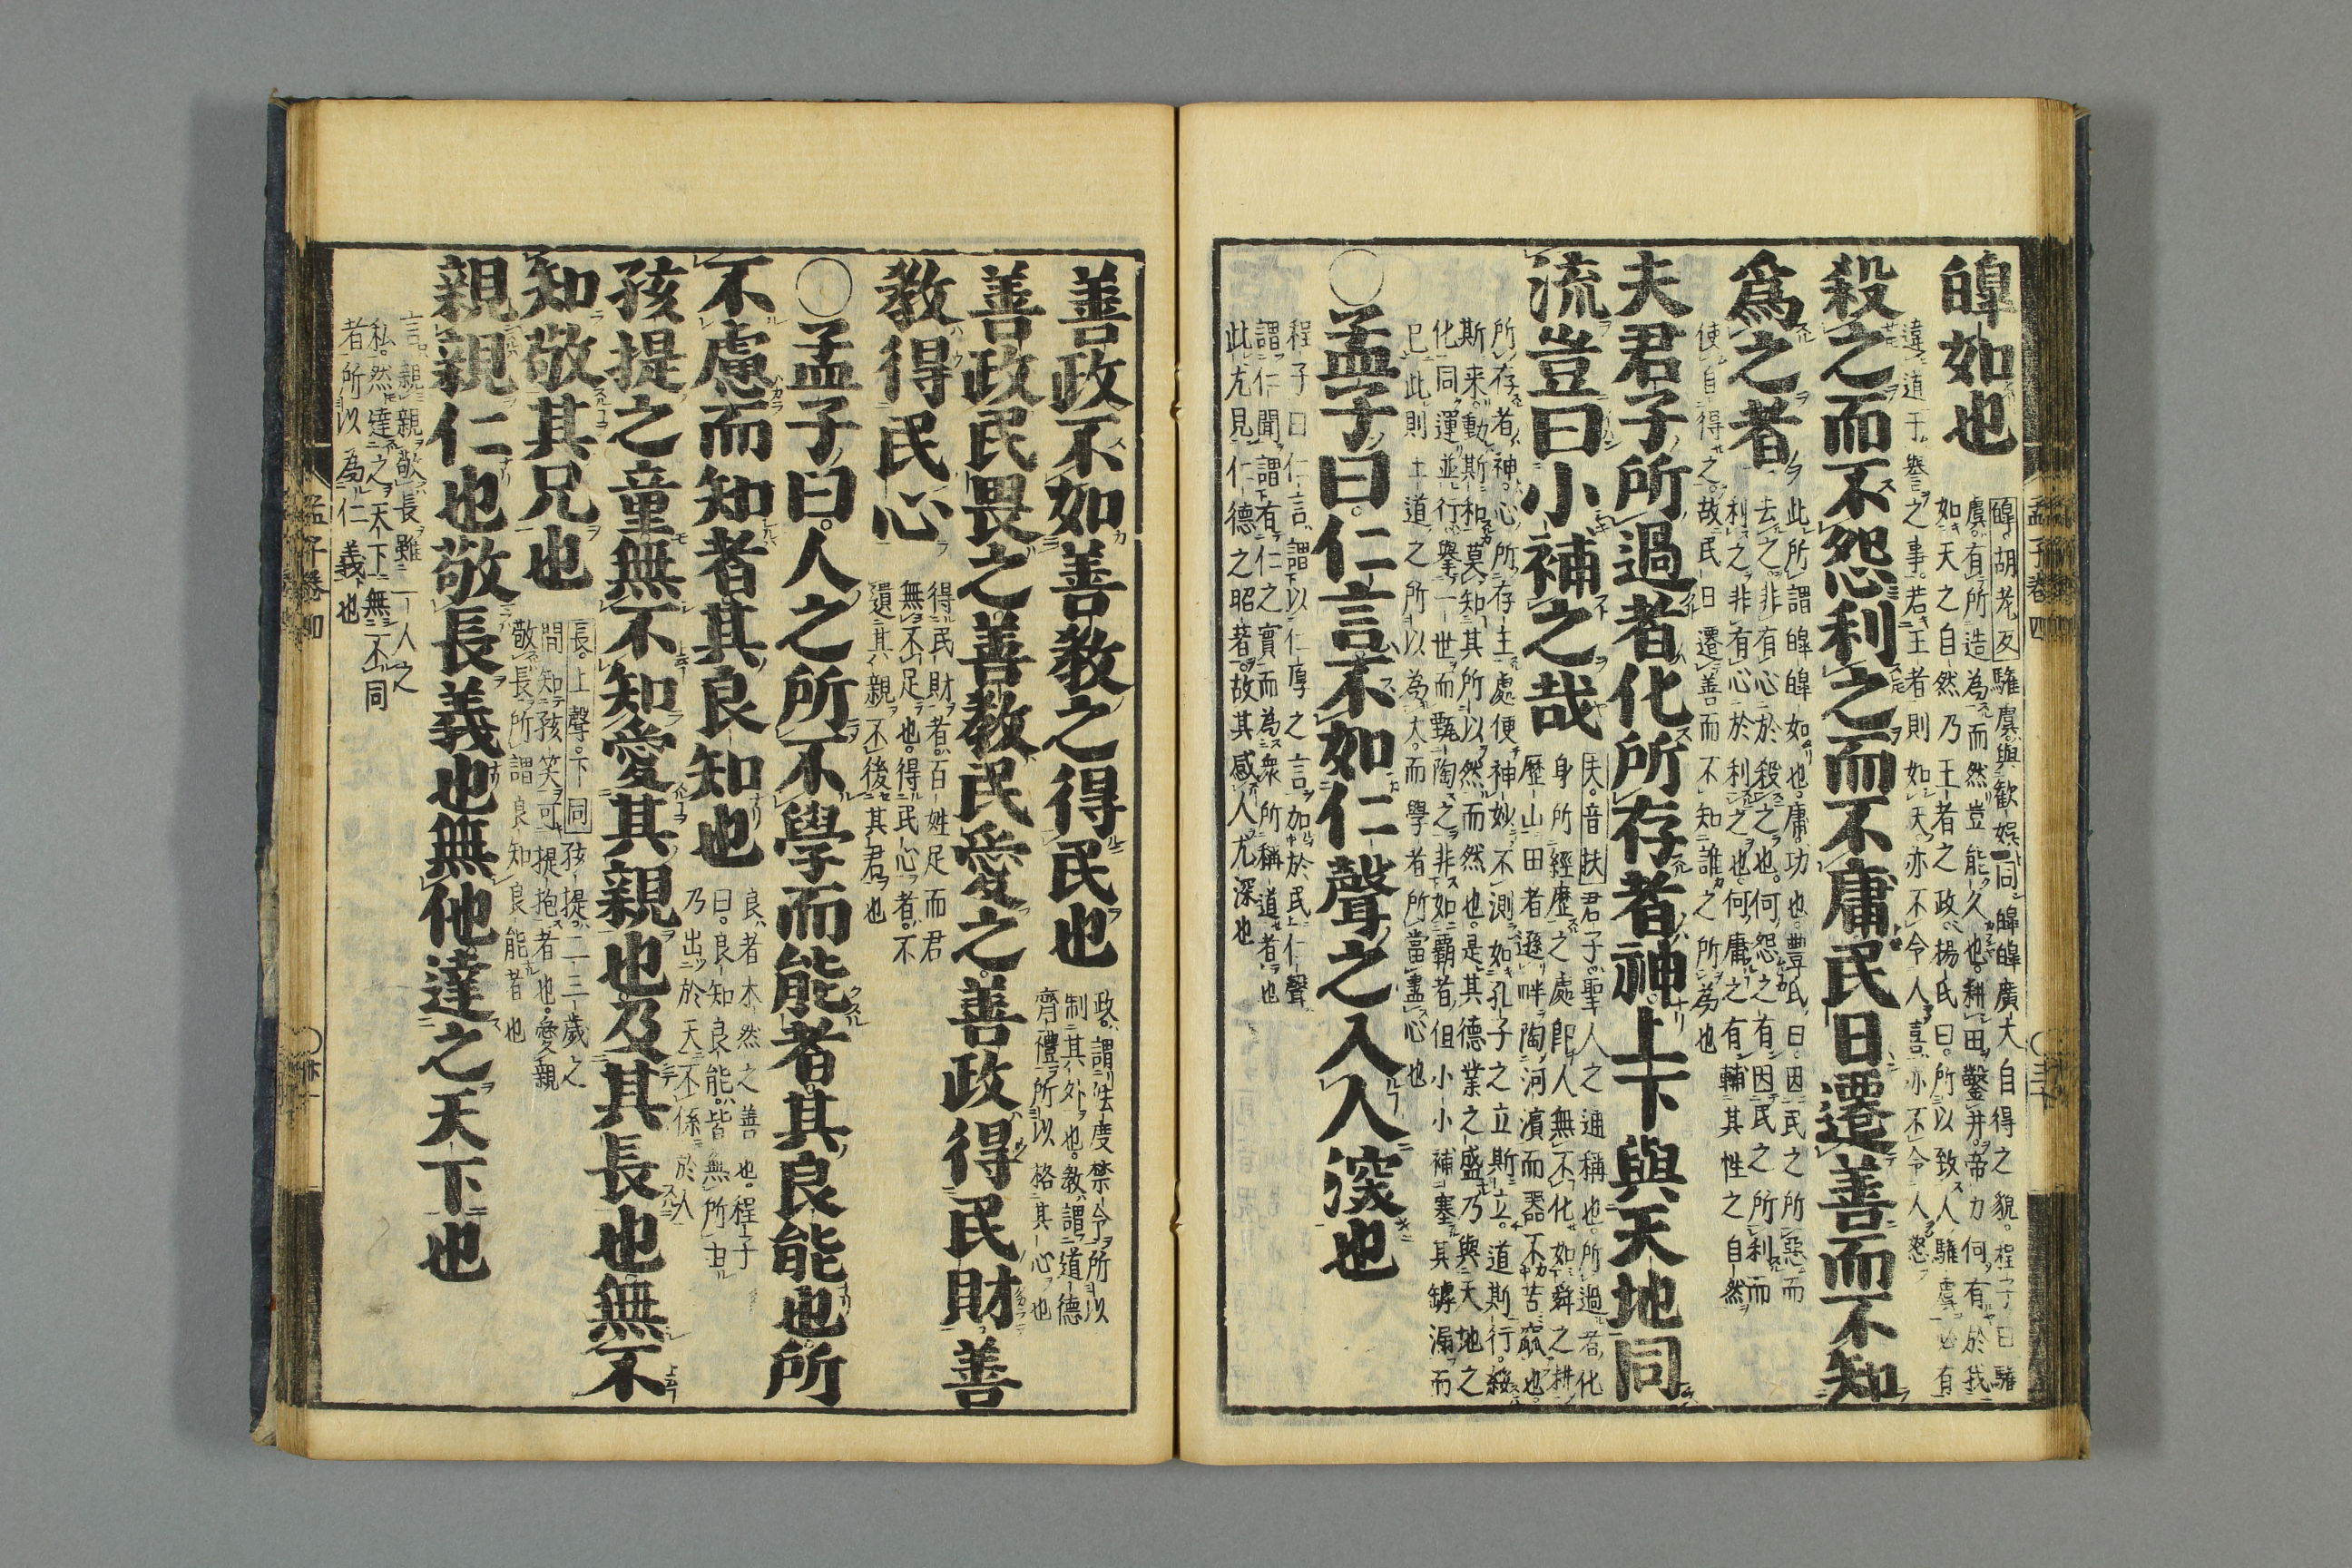 皥如也
皥胡老反驩虞與歡娛同皥皥廣大自得之貌程子曰驩
虞有所造為而然豈能久也耕田鑿井帝力何有於我
如天之自然乃王者之政楊氏曰所以致人驩虞必有
違道干譽之事若王者則如天亦不令人喜亦不令人怒
殺之而不怨利之而不庸民日遷善而不知
爲之者
此所謂皥皥如也庸功也豐氏曰因民之所惡而
去之非有心於殺之也何怨之有因民之所利而
利之非有心於利之也何庸之有輔其性之自然
使自得之故民日遷善而不知誰之所為也
夫君子所過者化所存者神上下與天地同
流豈曰小補之哉
夫音扶君子聖人之通稱也所過者化
身所經歷之處即人無不化如舜之耕
歷山田者遜畔陶河濱而器不苦窳也
所存者神心所存主處便神妙不測如孔子之立斯立道斯行綏
斯来動斯和莫知其所以然而然也是其德業之盛乃與天地之
化同運並行舉一世而甄陶之非如覇者但小小補塞其罅漏而
已此則王道之所以為大而學者所當盡心也
○孟子曰仁言不如仁聲之入人深也
程子曰仁言謂以仁厚之言加於民仁聲
謂仁聞謂有仁之實而為衆所稱道者也
此尤見仁德之昭著故其感人尤深也
孟子卷四
○三十
善政不如善教之得民也
政謂法度禁令所以
制其外也教謂道德
齊禮所以格其心也
善政民畏之善教民愛之善政得民財善
教得民心
得民財者百姓足而君
無不足也得民心者不
遺其親不後其君也
○孟子曰人之所不學而能者其良能也所
不慮而知者其良知也
良者本然之善也程子
曰良知良能皆無所由
乃出於天不係於人
孩提之童無不知愛其親也及其長也無不
知敬其兄也
長上聲下同孩提二三歲之
間知孩笑可提抱者也愛親
敬長所謂良知良能者也
親親仁也敬長義也無他達之天下也
言親親敬長雖一人之
私然達之天下無不同
者所以為仁義也
孟子卷四